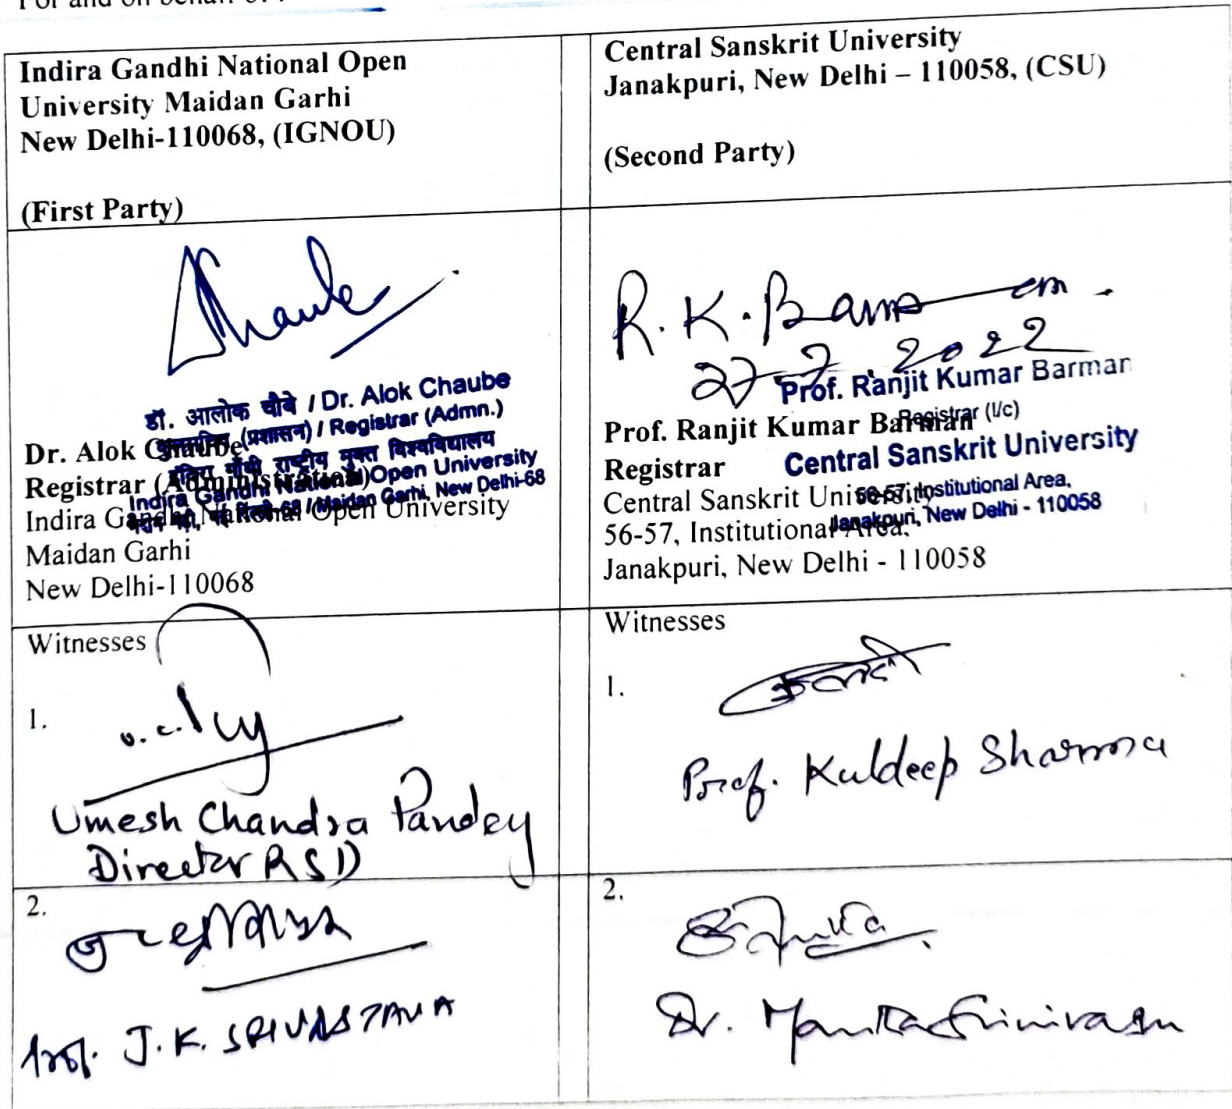 For and on behalf of
Indira Gandhi National Open
University Maidan Garhi
New Delhi-110068, (IGNOU)
(First Party)
Central Sanskrit University
Janakpuri, New Delhi – 110058, (CSU)
(Second Party)
डॉ. आलोक चौबे / Dr. Alok Chaube
(प्रशासन) / Registrar (Admn.)
इंदिरा गाँधी राष्ट्रीय मुक्त विश्वविद्यालय
Indira Gandhi National Open University
/ Maidan Garhi, New Delhi-68
Dr. Alok Chaube
Registrar (Administration)
Indira Gandhi National Open University
Maidan Garhi
New Delhi-110068
R. K. Barman
2022
Prof. Ranjit Kumar Barman
Registrar (I/c)
Central Sanskrit University
56-57, Institutional Area,
Janakpuri, New Delhi - 110058
Prof. Ranjit Kumar Barman
Registrar
Central Sanskrit University
56-57, Institutional Area,
Janakpuri, New Delhi - 110058
Witnesses
1.
Umesh Chandra Pandey
Director RSD
2.
Prof. J.K. SRIVASTAVA
Witnesses
1.
Prof. Kuldeep Sharma
2.
Dr.